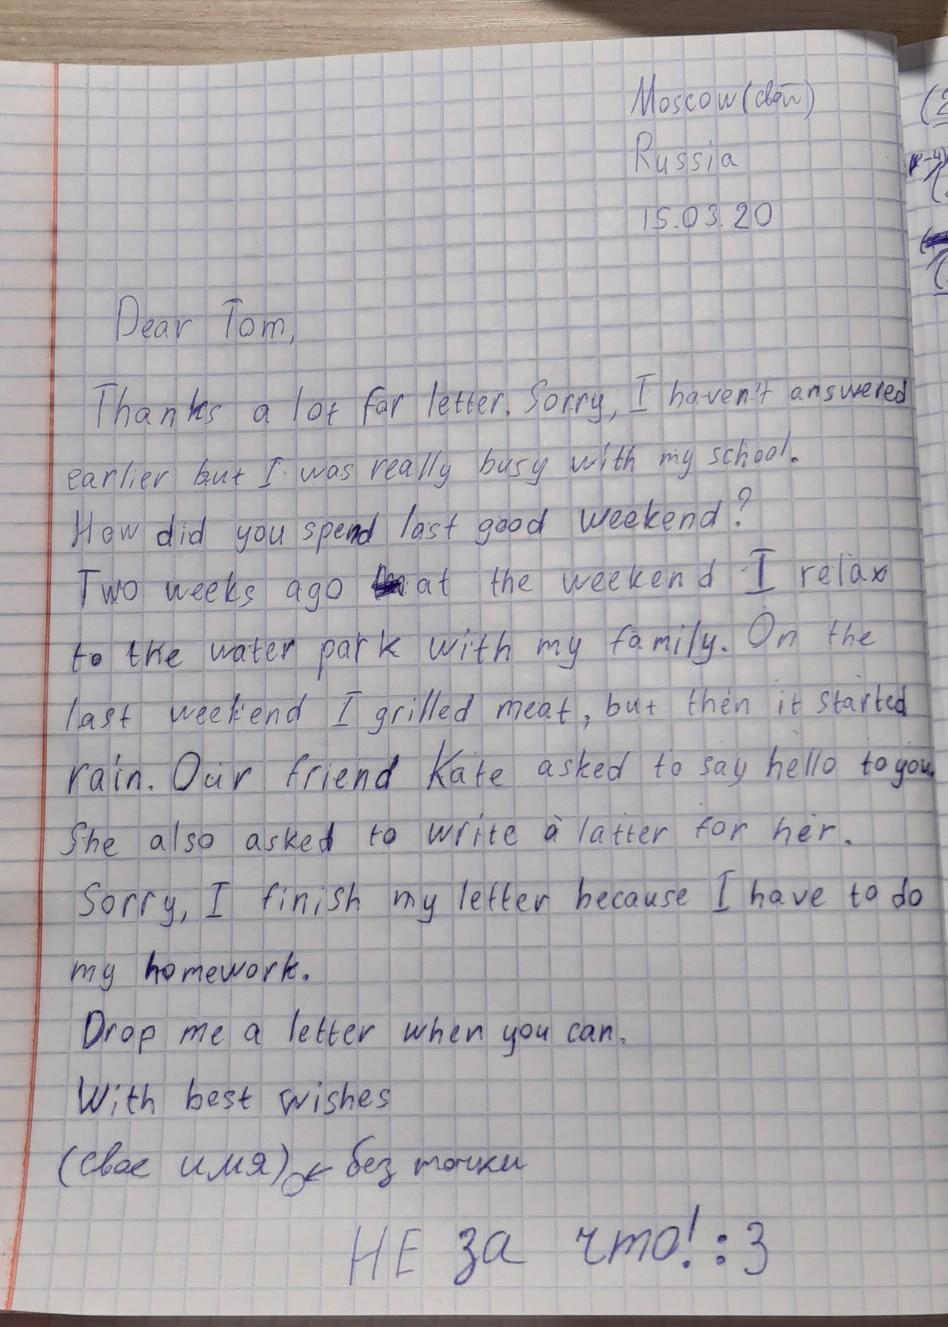 Moscow (свой)
Russia
15.03.20
Dear Tom,
Thanks a lot for letter. Sorry, I haven't answered
earlier but I was really busy with my school.
How did you spend last good weekend?
Two weeks ago at the weekend I relax
to the water park with my family. On the
last weekend I grilled meat, but then it started
rain. Our friend Kate asked to say hello to you.
She also asked to write a latter for her.
Sorry, I finish my letter because I have to do
my homework.
Drop me a letter when you can.
With best wishes
(свое имя) ← без точки
НЕ за что! :3